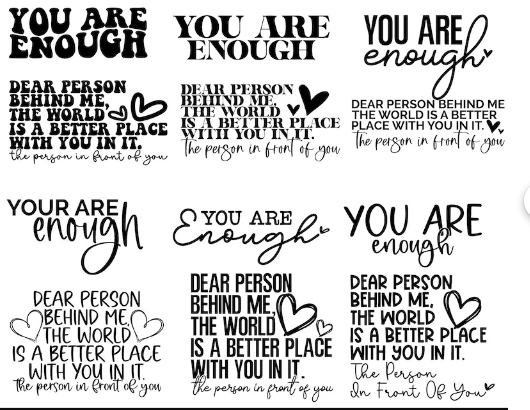 YOU ARE
ENOUGH
DEAR PERSON
BEHIND ME,
THE WORLD
IS A BETTER PLACE
WITH YOU IN IT.
the person in front of you
YOU ARE
ENOUGH
DEAR PERSON
BEHIND ME,
THE WORLD
IS A BETTER PLACE
WITH YOU IN IT.
the person in front of you
YOU ARE
enough
DEAR PERSON BEHIND ME
THE WORLD IS A BETTER
PLACE WITH YOU IN IT.
the person in front of you
YOUR ARE
enough
DEAR PERSON
BEHIND ME,
THE WORLD
IS A BETTER PLACE
WITH YOU IN IT.
the person in front of you
YOU ARE
Enough
DEAR PERSON
BEHIND ME,
THE WORLD
IS A BETTER PLACE
WITH YOU IN IT.
the person in front of you
YOU ARE
enough
DEAR PERSON
BEHIND ME,
THE WORLD
IS A BETTER PLACE
WITH YOU IN IT.
The Person
In Front Of You